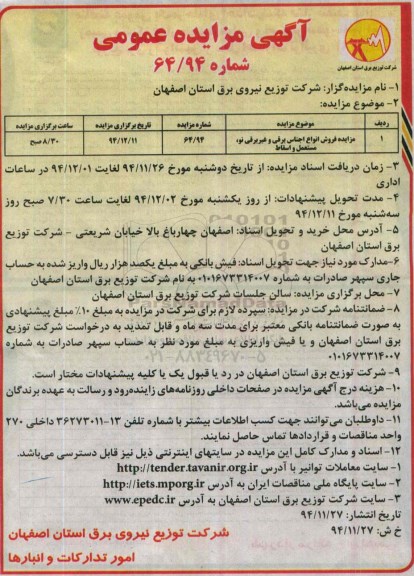 آگهی مزایده عمومی
شماره ۶۴/۹۴
شرکت توزیع برق استان اصفهان
۱- نام مزایده‌گزار: شرکت توزیع نیروی برق استان اصفهان
۲- موضوع مزایده:
ردیف موضوع مزایده شماره مزایده تاریخ برگزاری مزایده ساعت برگزاری مزایده
۱ مزایده فروش انواع اجناس برقی و غیربرقی نو، ۶۴/۹۴ ۹۴/۱۲/۱۱ ۸/۳۰ صبح
مستعمل و اسقاط
۳- زمان دریافت اسناد مزایده: از تاریخ دوشنبه مورخ ۹۴/۱۱/۲۶ لغایت ۹۴/۱۲/۰۱ در ساعات
اداری
۴- مدت تحویل پیشنهادات: از روز یکشنبه مورخ ۹۴/۱۲/۰۲ لغایت ساعت ۷/۳۰ صبح روز
سه‌شنبه مورخ ۹۴/۱۲/۱۱
۵- آدرس محل خرید و تحویل اسناد: اصفهان چهارباغ بالا خیابان شریعتی - شرکت توزیع
برق استان اصفهان
۶-مدارک مورد نیاز جهت تحویل اسناد: فیش بانکی به مبلغ یکصد هزار ریال واریز شده به حساب
جاری سپهر صادرات به شماره ۰۱۰۱۶۷۳۳۱۴۰۰۷ به نام شرکت توزیع برق استان اصفهان
۷- محل برگزاری مزایده: سالن جلسات شرکت توزیع برق استان اصفهان
۸- ضمانتنامه شرکت در مزایده: سپرده لازم برای شرکت در مزایده به مبلغ ۱۰٪ مبلغ پیشنهادی
به صورت ضمانتنامه بانکی معتبر برای مدت سه ماه و قابل تمدید به درخواست شرکت توزیع
برق استان اصفهان و یا فیش واریزی به مبلغ مورد نظر به حساب سپهر صادرات به شماره
۰۱۰۱۶۷۳۳۱۴۰۰۷
۹- شرکت توزیع برق استان اصفهان در رد یا قبول یک یا کلیه پیشنهادات مختار است.
۱۰- هزینه درج آگهی مزایده در صفحات داخلی روزنامه‌های زاینده‌رود و رسالت به عهده برندگان
مزایده می‌باشد.
۱۱- داوطلبان می‌توانند جهت کسب اطلاعات بیشتر با شماره تلفن ۱۳-۳۶۲۷۳۰۱۱ داخلی ۲۷۰
واحد مناقصات و قراردادها تماس حاصل نمایند.
۱۲- اسناد و مدارک کامل این مزایده در سایتهای اینترنتی ذیل نیز قابل دسترسی می‌باشد.
۱- سایت معاملات توانیر با آدرس http://tender.tavanir.org.ir
۲- سایت پایگاه ملی مناقصات ایران به آدرس http://iets.mporg.ir
۳- سایت شرکت توزیع برق استان اصفهان به آدرس www.epedc.ir
تاریخ انتشار: ۹۴/۱۱/۲۷
خ ش: ۹۴/۱۱/۲۷
شرکت توزیع نیروی برق استان اصفهان
امور تدارکات و انبارها